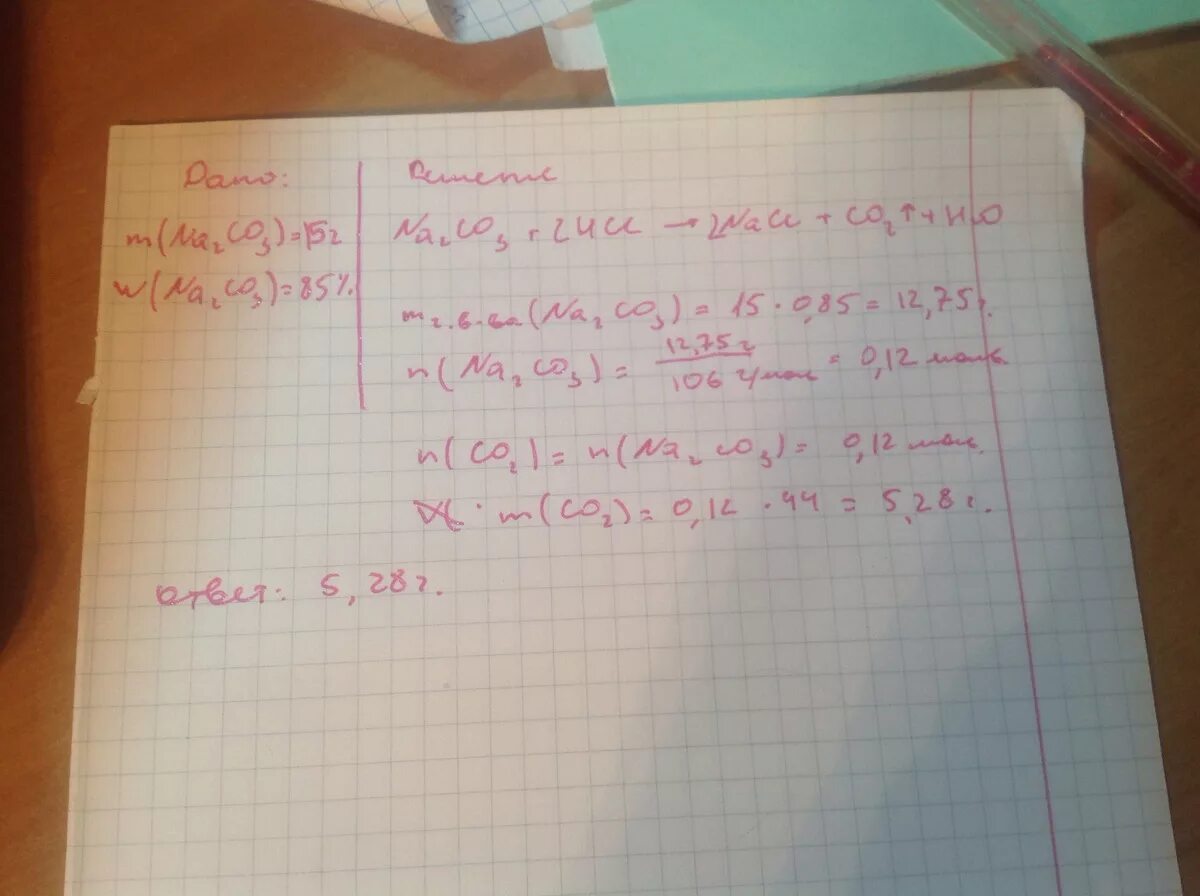 Дано:
m(Na₂CO₃)=15г
w(Na₂CO₃)=85%.
Решение
Na₂CO₃ + 2HCl → 2NaCl + CO₂↑ + H₂O
m ч.в-ва (Na₂CO₃) = 15 · 0,85 = 12,75 г.
n(Na₂CO₃) = 12,75г / 106 г/моль = 0,12 моль.
n(CO₂) = n(Na₂CO₃) = 0,12 моль.
m(CO₂) = 0,12 · 44 = 5,28 г.
Ответ: 5,28 г.